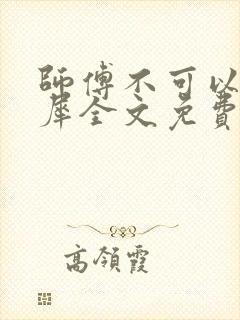 師傅不可以
犀全文免費
高領霞